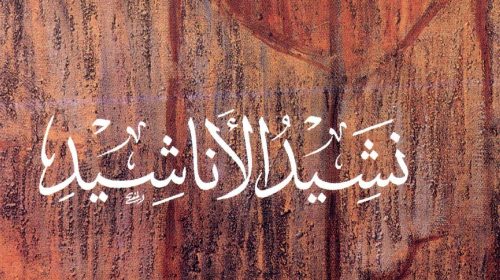 نَشِيْدُ الأَنَاشِيْدِ